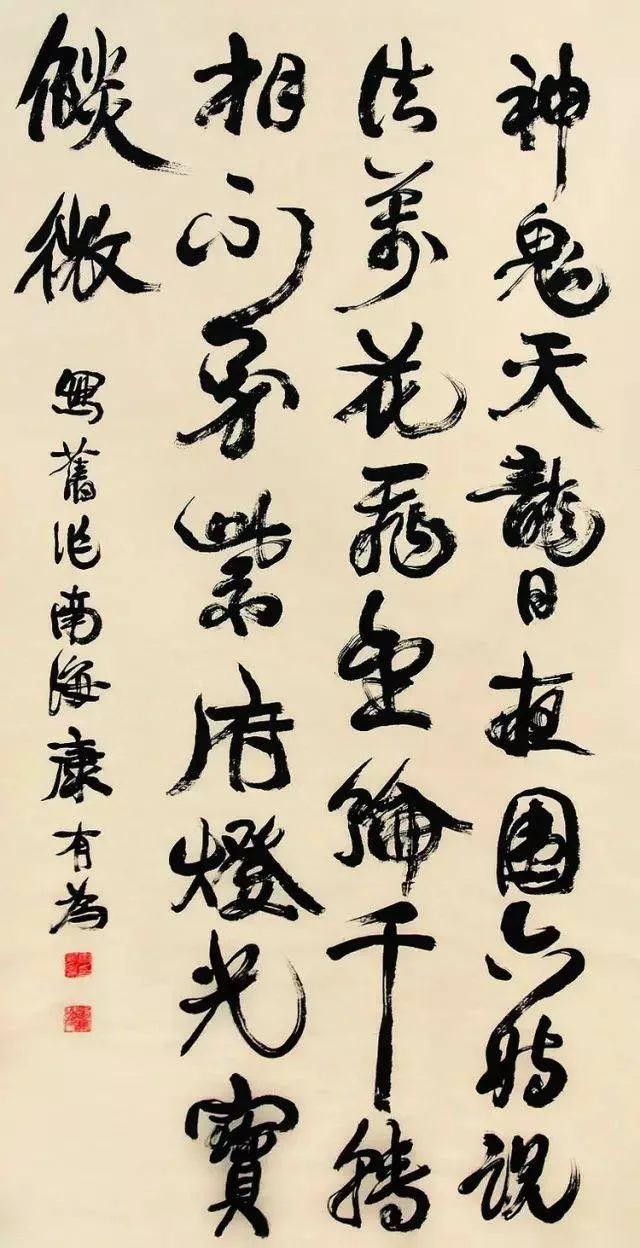 神鬼天龍日夜圍六時說
法萬花飛輪千轉
相身紫府燈光寶
燄微
寫舊作南海康有為